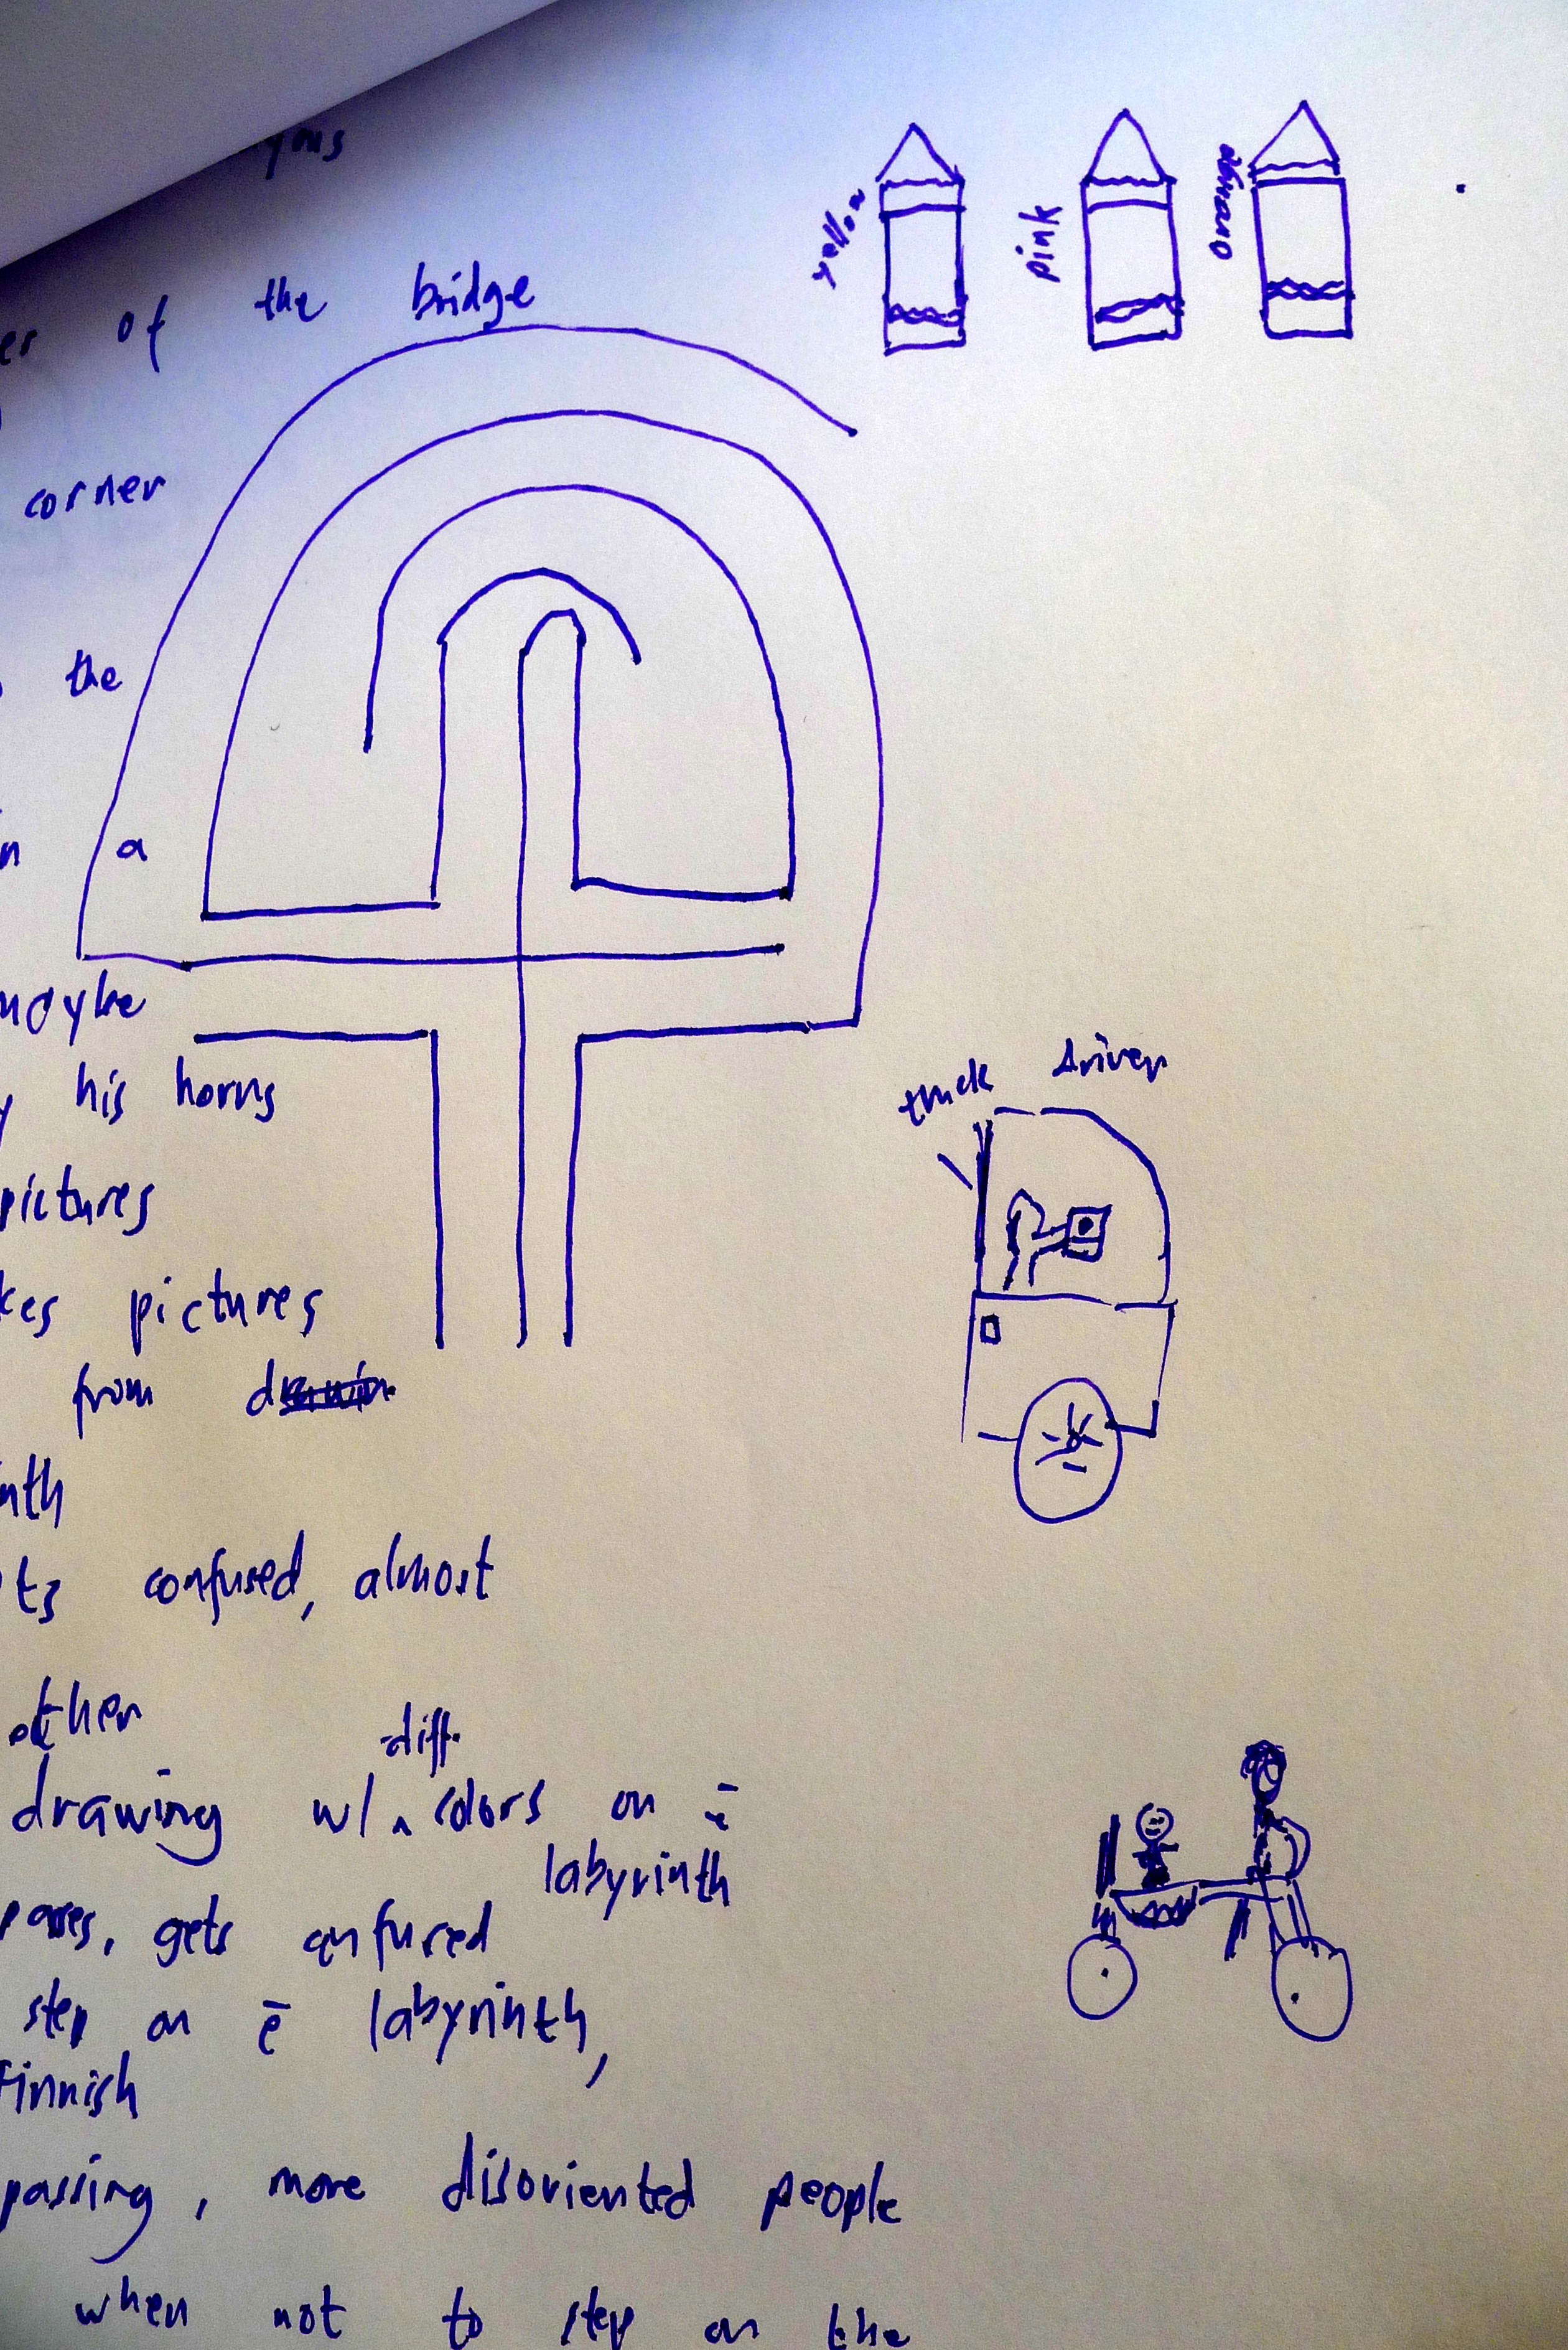 yellow
pink
orange
of the bridge
corner
the
a
maybe
his horns
pictures
pictures
from
truck driver
confused, almost
other
diff.
drawing w/ ^ colors on ē
labyrinth
passes, gets confused
step on ē labyrinth,
Finnish
passing, more disoriented people
when not to step on the